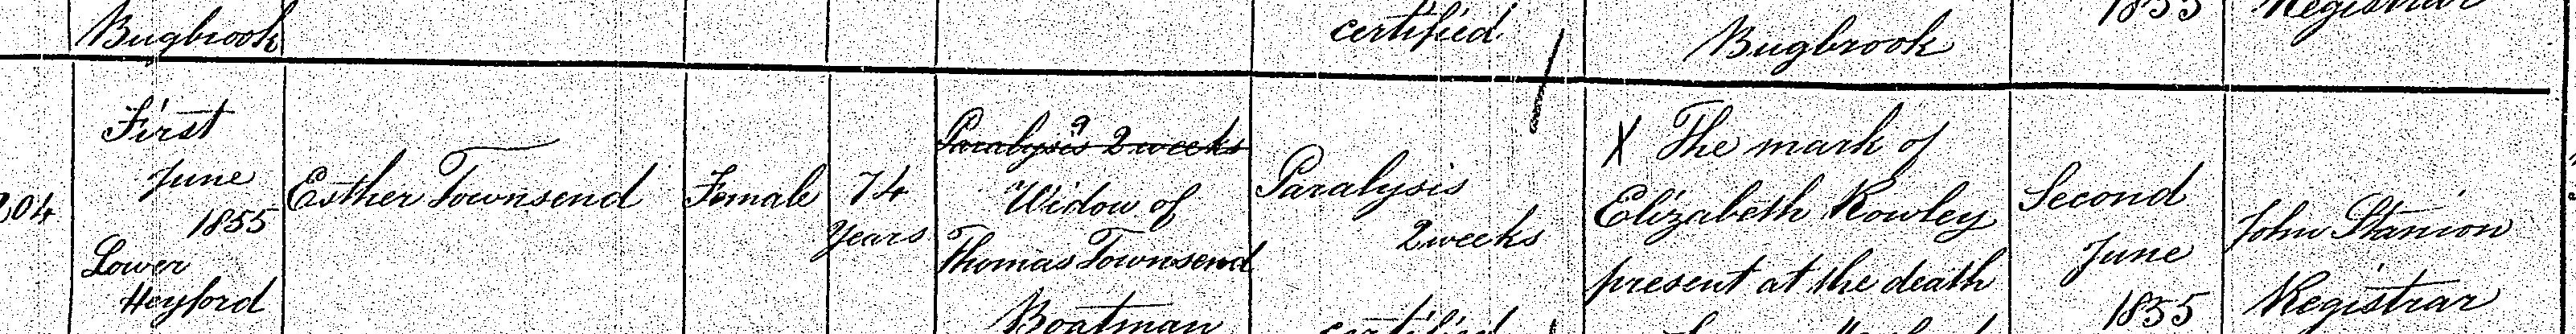 Bugbrook
certified
Bugbrook
1855
Registrar
204
First
June
1855
Lower
Heyford
Esther Townsend
Female
74
Years
Paralysis 2 weeks
Widow of
Thomas Townsend
Boatman
Paralysis
2 weeks
certified
X The mark of
Elizabeth Rowley
present at the death
Second
June
1855
John Stanion
Registrar